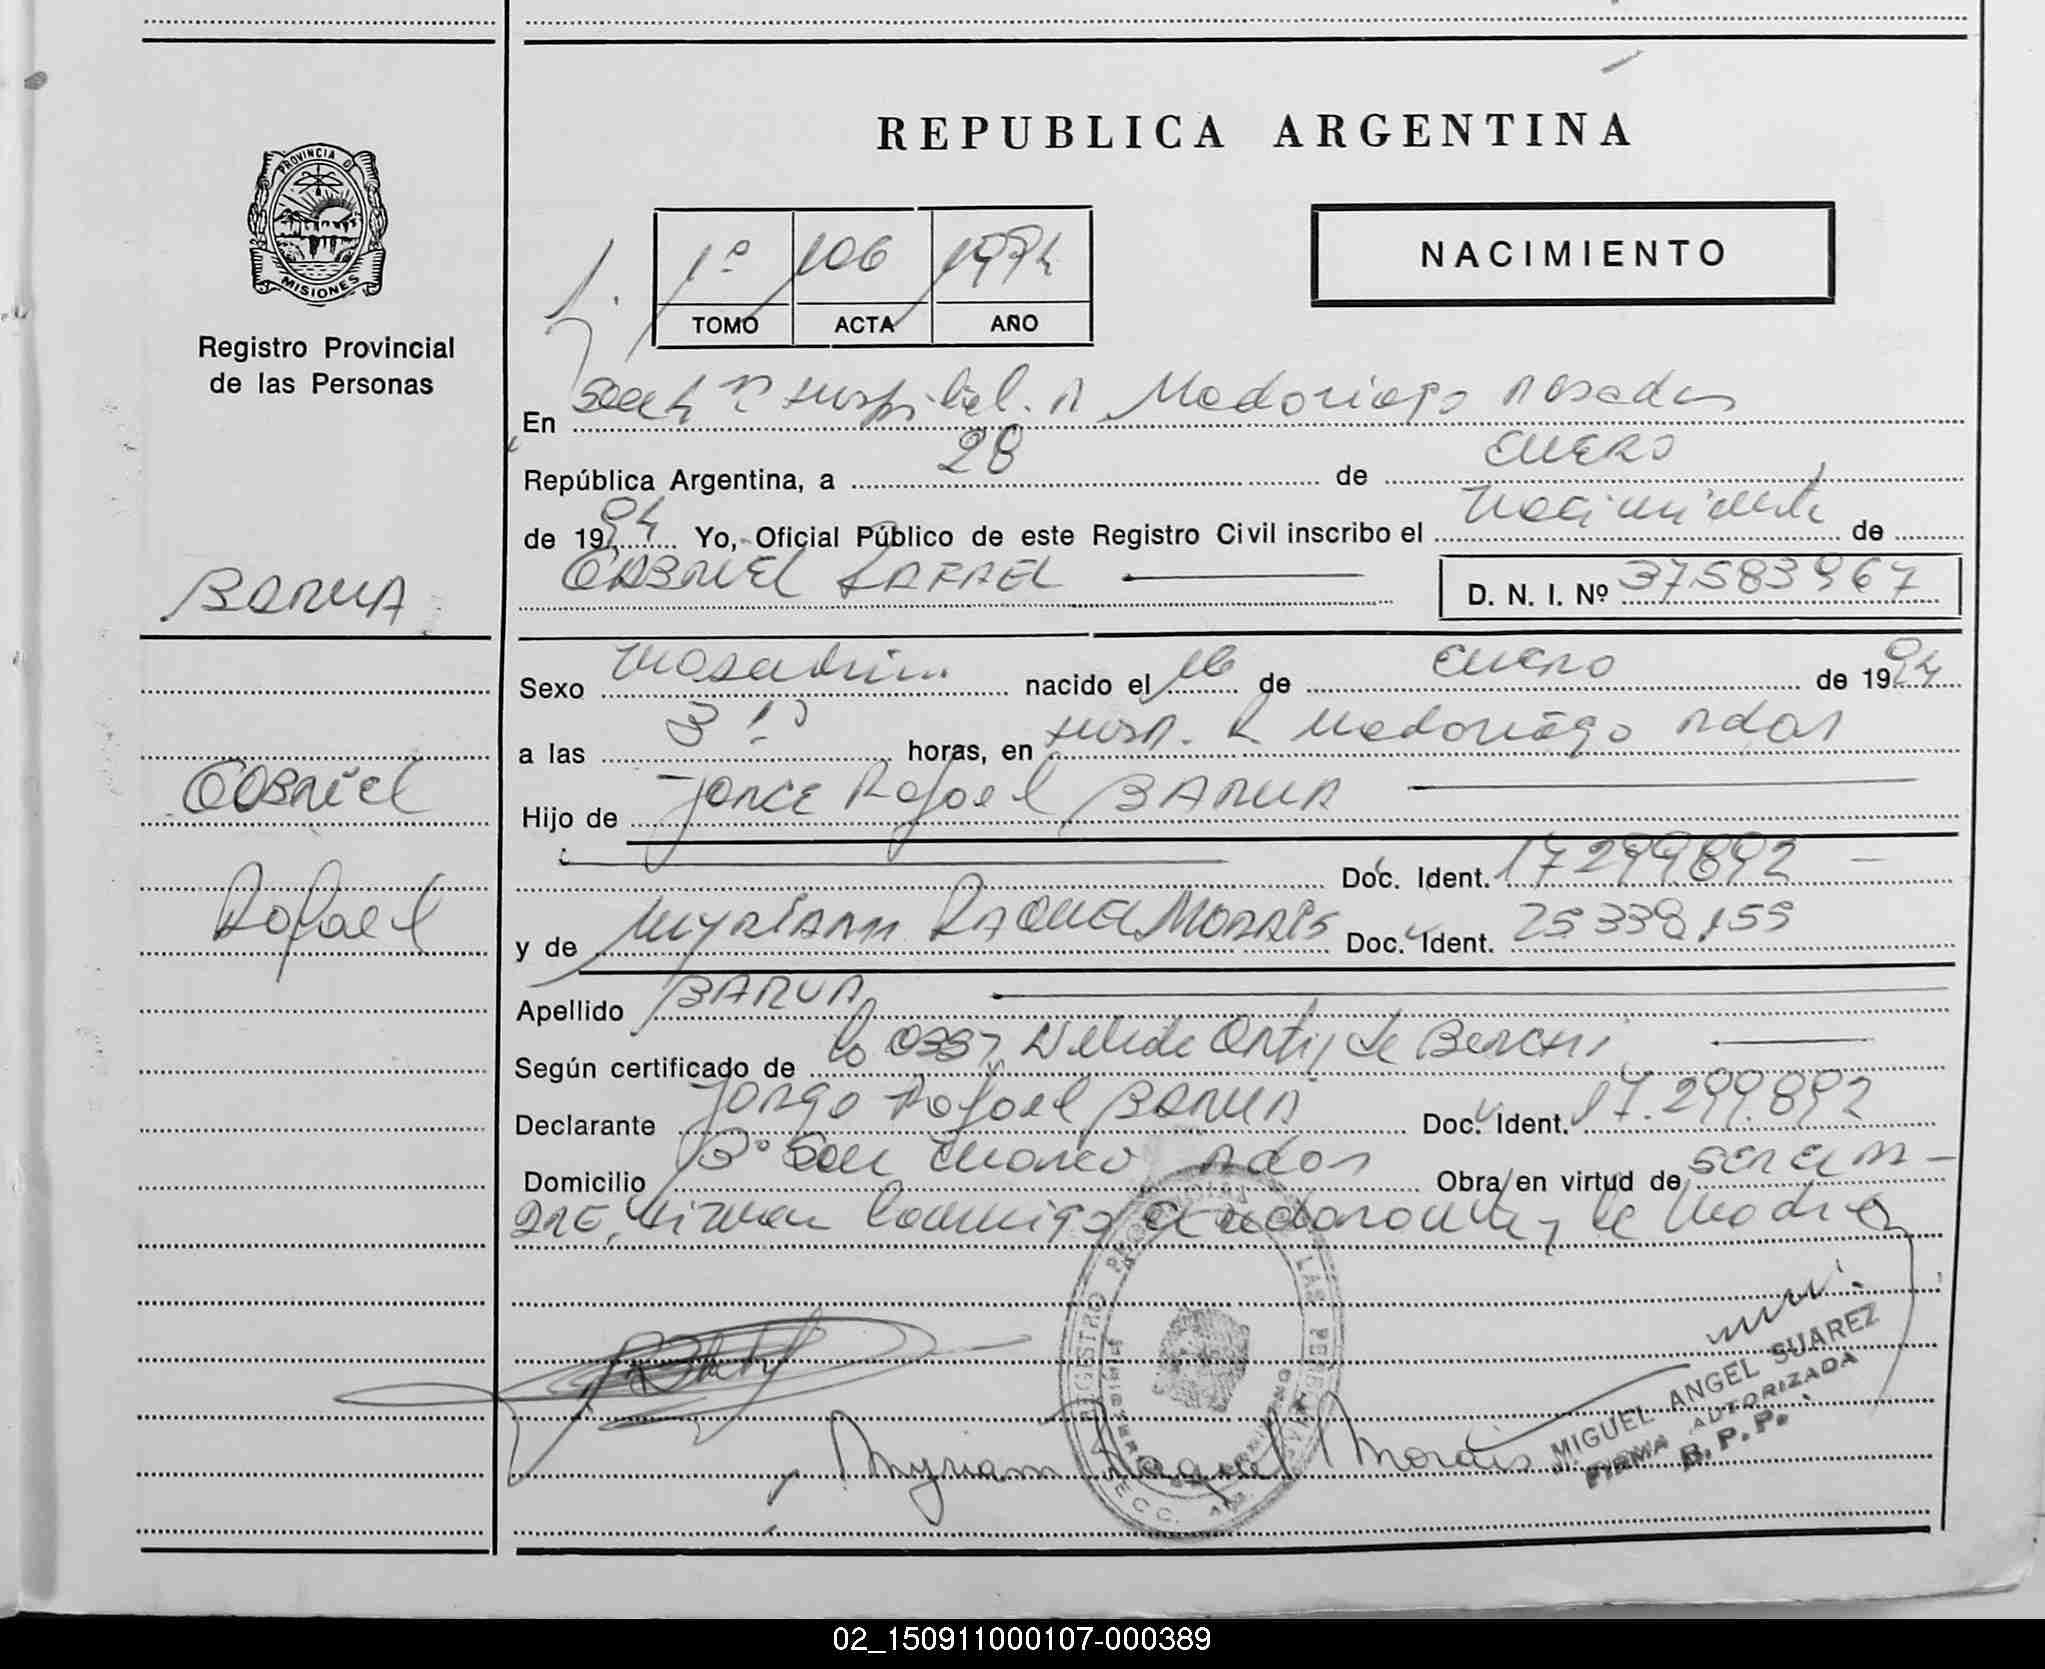 REPUBLICA ARGENTINA
PROVINCIA DE
MISIONES
Registro Provincial
de las Personas
1º 106 1994
TOMO ACTA AÑO
NACIMIENTO
En Secc 1ª Hospital R Madariaga Posadas
República Argentina, a 28 de ENERO
de 1994 Yo, Oficial Público de este Registro Civil inscribo el Nacimiento de
GABRIEL RAFAEL D. N. I. Nº 37583967
BARUA
Sexo Masculino nacido el 16 de ENERO de 1994
a las 3 horas, en Hosp. R Madariaga Pdas
Gabriel
Hijo de JORGE Rafael BARUA
Doc. Ident. 17299892
Rafael
y de MYRIAM RAQUEL MORAIS Doc. Ident. 25338,155
Apellido BARUA
Según certificado de la Ortiz de
Declarante Jorge Rafael BARUA Doc. Ident. 17.299.892
Domicilio Bº San Marco Pdas Obra en virtud de SER EL PA-
DRE, Firman Conmigo el declarante y la Madre
REGISTRO PROVINCIAL DE LAS PERSONAS
MIGUEL ANGEL SUAREZ
FIRMA AUTORIZADA
R.P.P.
Myriam Raquel Morais
02_150911000107-000389